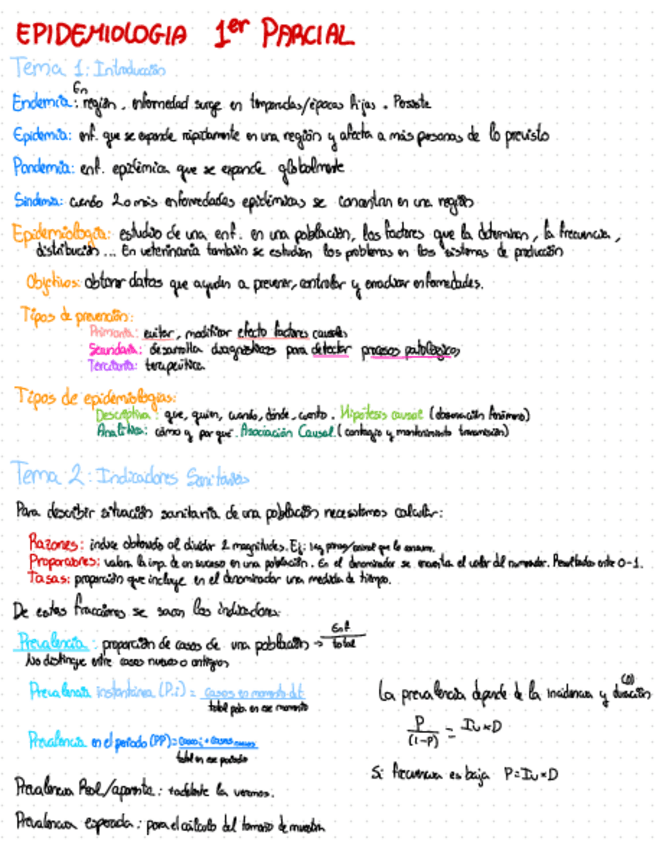 EPIDEMIOLOGIA 1er PARCIAL
Tema 1: Introducción
Endemia: En región, enfermedad surge en temporadas/épocas fijas. Persiste
Epidemia: enf. que se expande rápidamente en una región y afecta a más personas de lo previsto
Pandemia: enf. epidémica que se expande globalmente
Sindemia: cuando 2 o más enfermedades epidémicas se concentran en una región
Epidemiología: estudio de una enf. en una población, los factores que la determinan, la frecuencia,
distribución ... En veterinaria también se estudian los problemas en los sistemas de producción
Objetivos: obtener datos que ayuden a prevenir, controlar y erradicar enfermedades.
Tipos de prevención:
Primaria: evitar, modificar efecto factores causales
Secundaria: desarrolla diagnósticos para detectar procesos patológicos
Terciaria: terapéutica
Tipos de epidemiologías:
Descriptiva: que, quien, cuando, dónde, cuanto. Hipótesis causal (observación fenómeno)
Analítica: cómo y por qué. Asociación Causal (contagio y mantenimiento transmisión)
Tema 2: Indicadores Sanitarios
Para describir situación sanitaria de una población necesitamos calcular:
Razones: índice obtenido al dividir 2 magnitudes. Ej:
Proporciones: valora la imp. de un suceso en una población. En el denominador se encuentra el valor del numerador. Resultados entre 0-1.
Tasas: proporción que incluye en el denominador una medida de tiempo.
De estas fracciones se sacan los indicadores:
Prevalencia: proporción de casos de una población → enf / total
No distingue entre casos nuevos o antiguos
Prevalencia instantánea (P.i) = casos en momento dt / total pob. en ese momento
La prevalencia depende de la incidencia y duración (D)
P / (1-P) = Iv × D
Prevalencia en el periodo (PP) = casos i + casos nuevos / total en ese periodo
Si frecuencia es baja P = Iv × D
Prevalencia Real/aparente: + adelante la veremos.
Prevalencia esperada: para el cálculo del tamaño de muestra